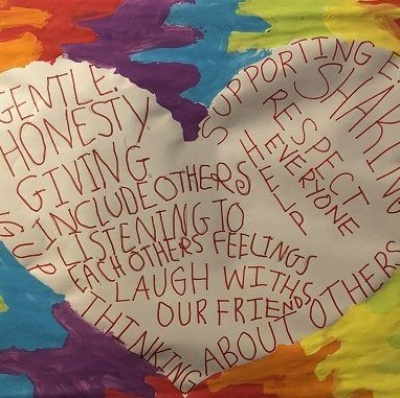 GENTLE.
HONESTY.
GIVING.
INCLUDE OTHERS
LISTENING TO
EACH OTHERS FEELINGS
LAUGH WITH
OUR FRIENDS
THINKING ABOUT OTHERS
SUPPORTING
SHARING
RESPECT
EVERYONE
HELP
G UP